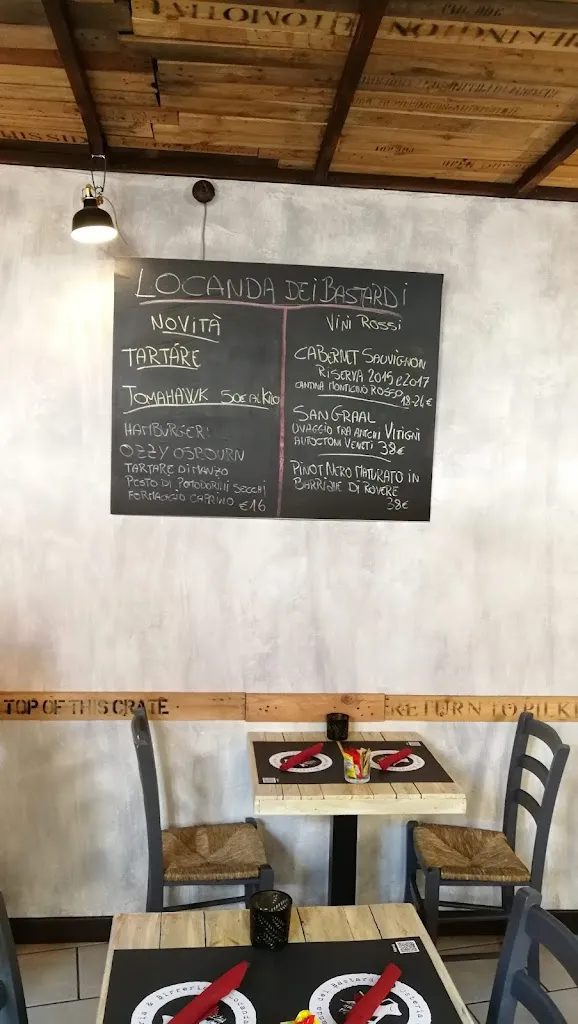 LOCANDA DEI BASTARDI
NOVITÀ
TARTÁRE
TOMAHAWK 50€ AL KILO
HAMBURGER
OZZY OSBOURN
TARTARE DI MANZO
PESTO DI POMODORINI SECCHI
FORMAGGIO CAPRINO €16
VINI ROSSI
CABERNET SAUVIGNON
RISERVA 2015 E 2017
CANTINA MONTICINO ROSSO
18-24€
SANGRAAL
UVAGGIO TRA ANTICHI VITIGNI
AUTOCTONI VENETI 38€
PINOT NERO MATURATO IN
BARRIQUE DI ROVERE
38€
TOP OF THIS CRATE
RETURN TO PILK